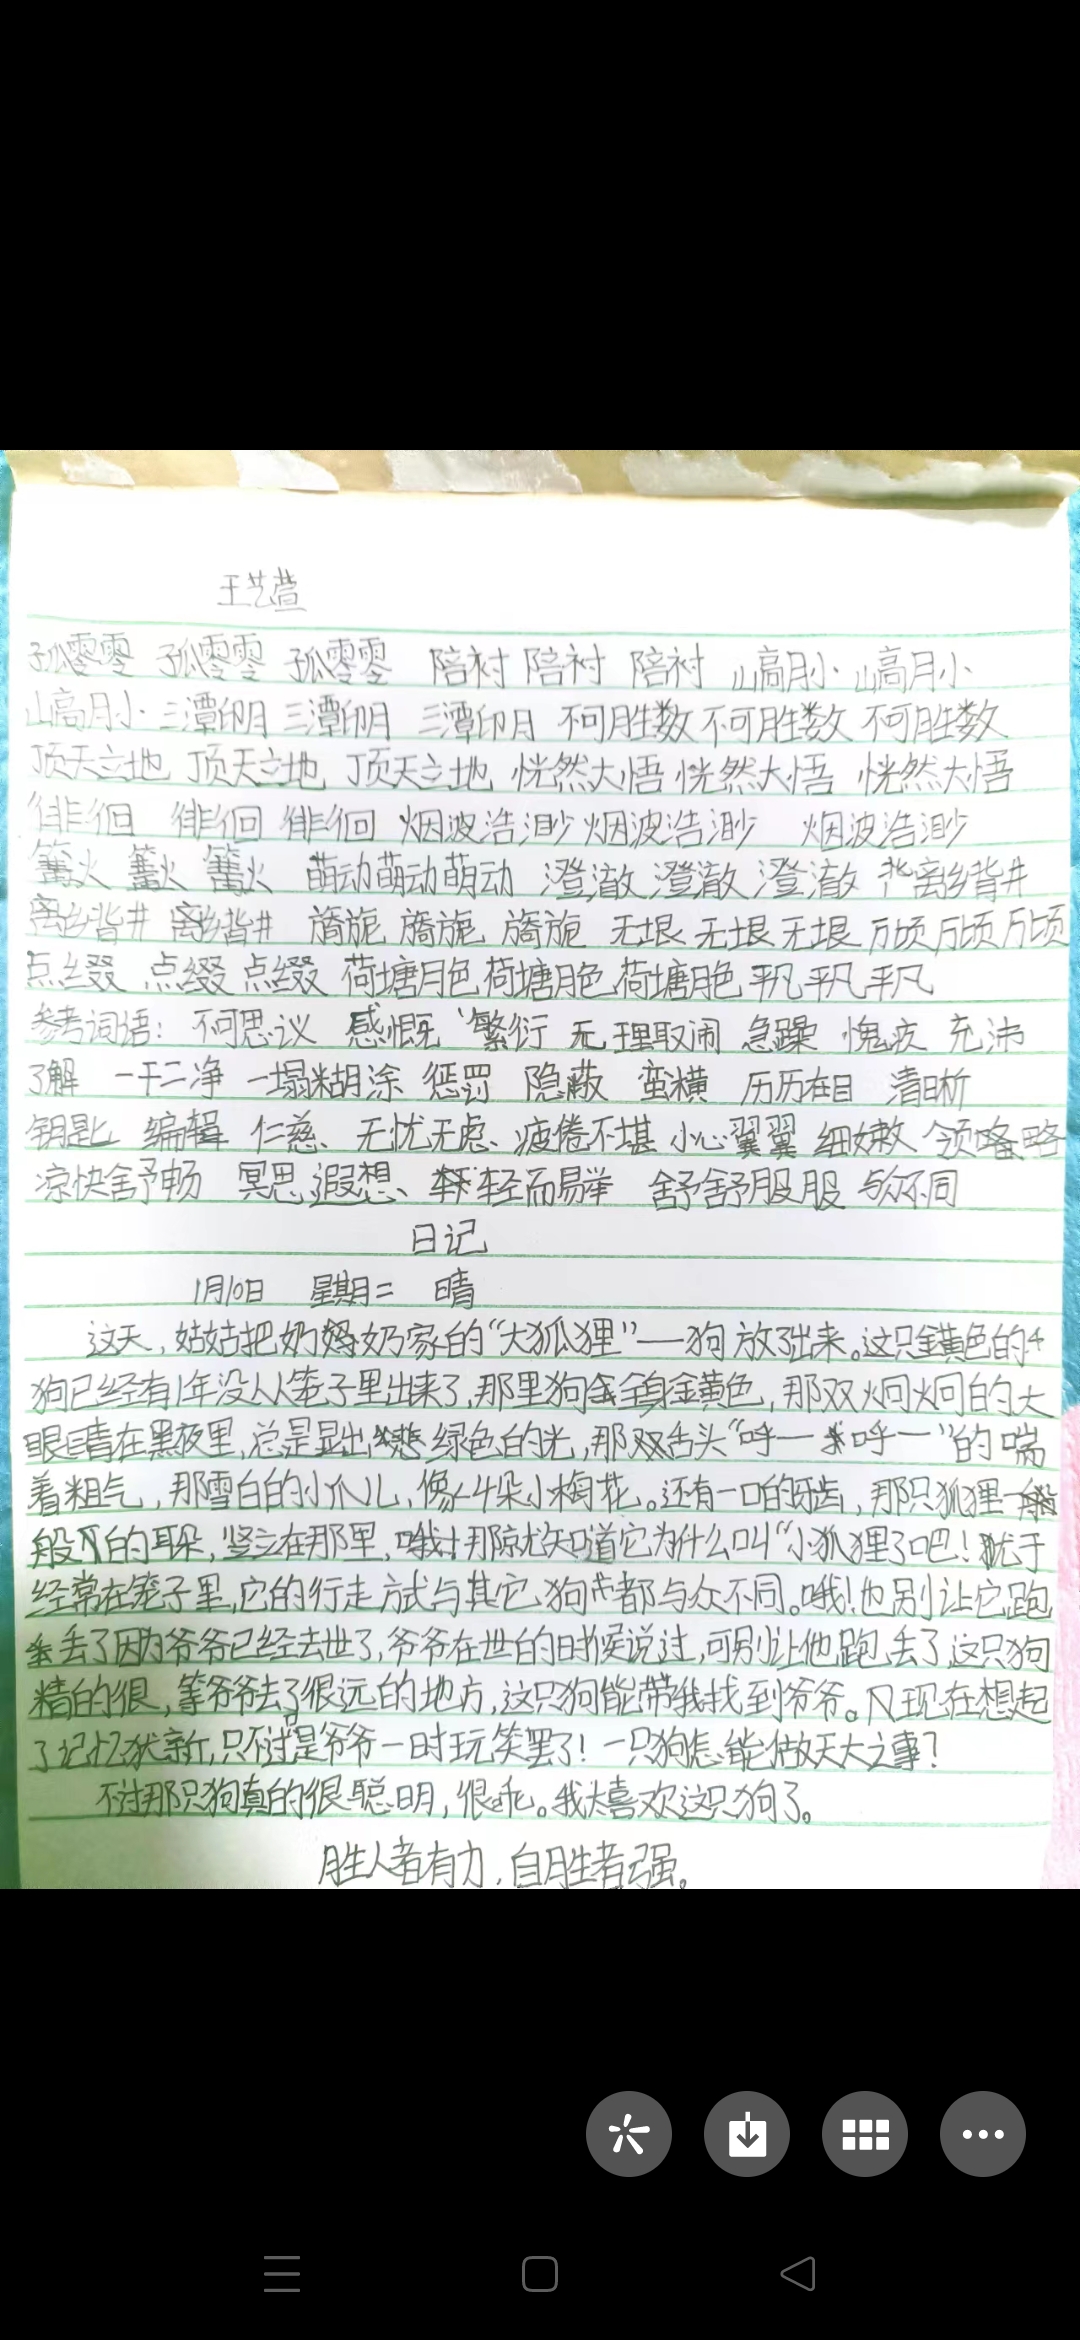 王艺萱
孤零零 孤零零 孤零零 陪衬 陪衬 陪衬 山高月小 山高月小
山高月小 三潭印月 三潭印月 三潭印月 不可胜数 不可胜数 不可胜数
顶天立地 顶天立地 顶天立地 恍然大悟 恍然大悟 恍然大悟
徘徊 徘徊 徘徊 烟波浩渺 烟波浩渺 烟波浩渺
篝火 篝火 篝火 萌动 萌动 萌动 澄澈 澄澈 澄澈 离乡背井
离乡背井 离乡背井 旖旎 旖旎 旖旎 无垠 无垠 无垠 万顷 万顷 万顷
点缀 点缀 点缀 荷塘月色 荷塘月色 荷塘月色 平凡 平凡 平凡
参考词语： 不可思议 感慨 繁衍 无理取闹 急躁 愧疚 充沛
了解 一干二净 一塌糊涂 惩罚 隐蔽 蛮横 历历在目 清晰
钥匙 编辑 仁慈、无忧无虑、疲倦不堪 小心翼翼 细嫩 领略
凉快舒畅 冥思遐想、轻而易举 舒舒服服 与众不同
日记
1月10日 星期二 晴
这天，姑姑把奶奶家的“大狐狸”——狗放出来。这只金黄色的
狗已经有1年没从笼子里出来了，那里狗全身金黄色，那双炯炯的大
眼睛在黑夜里，总是显出绿色的光，那双舌头“呼一呼一”的喘
着粗气，那雪白的小爪儿，像4朵小梅花。还有一口的牙齿，那只狐狸一
般的耳朵，竖立在那里，哦！那就知道它为什么叫“小狐狸了吧！犹于
经常在笼子里，它的行走方式与其它狗都与众不同。哦！也别让它跑
丢了因为爷爷已经去世了，爷爷在世的时候说过，可别让他跑丢了，这只狗
精的很，等爷爷去了很远的地方，这只狗能带我找到爷爷。现在想起
了记忆犹新，只不过是爷爷一时玩笑罢了！一只狗怎能做天大之事？
不过那只狗真的很聪明，很乖。我太喜欢这只狗了。
胜人者有力，自胜者强。